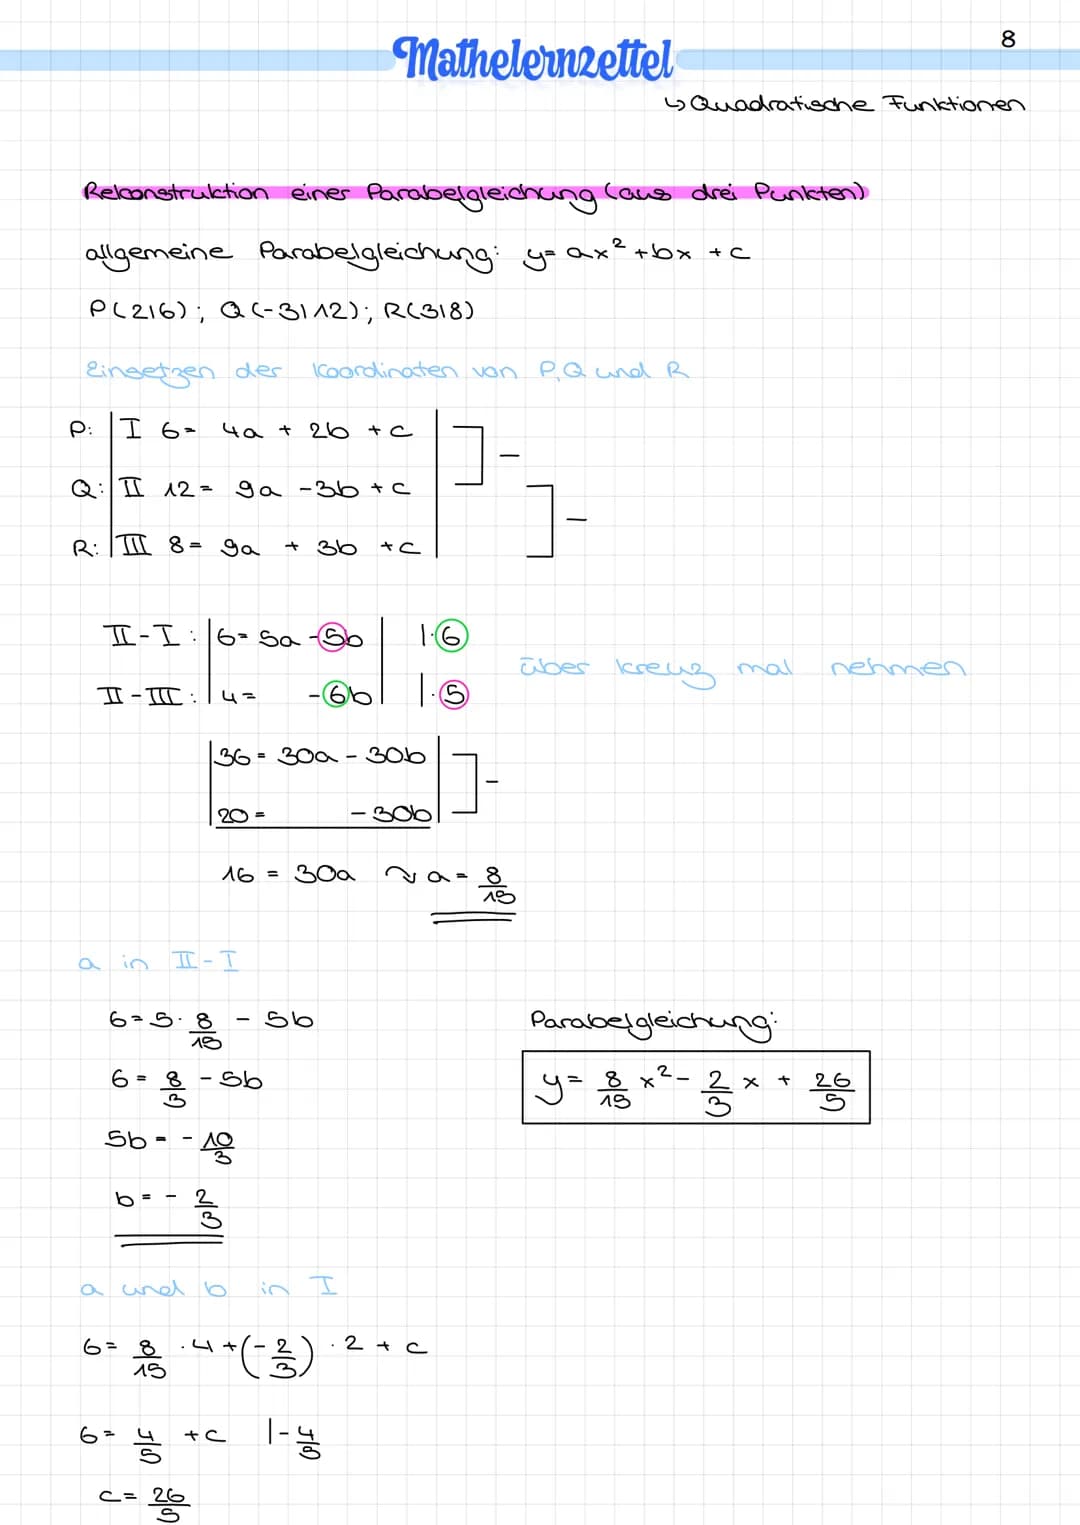 8
Mathelernzettel
↳ Quadratische Funktionen
Rekonstruktion einer Parabelgleichung (aus drei Punkten)
allgemeine Parabelgleichung: y= ax² + bx + c
P(2|6); Q(-3|12); R(3|8)
Einsetzen der Koordinaten von P,Q und R
P: | I 6= 4a + 2b + c |
Q: | II 12= 9a -3b + c |
R: | III 8= 9a + 3b + c |
-
-
II-I: | 6= 5a -5b | |·6
II-III: | 4= -6b | |·5
über kreuz mal nehmen
| 36= 30a - 30b |
| 20= - 30b |
-
16 = 30a ↝ a= 8/15
a in II-I
6=5· 8/15 - 5b
6= 8/3 - 5b
5b= - 10/3
b= - 2/3
Parabelgleichung:
y= 8/15 x² - 2/3 x + 26/5
a und b in I
6= 8/15 ·4+(- 2/3) ·2 + c
6= 4/5 +c |- 4/5
c= 26/5